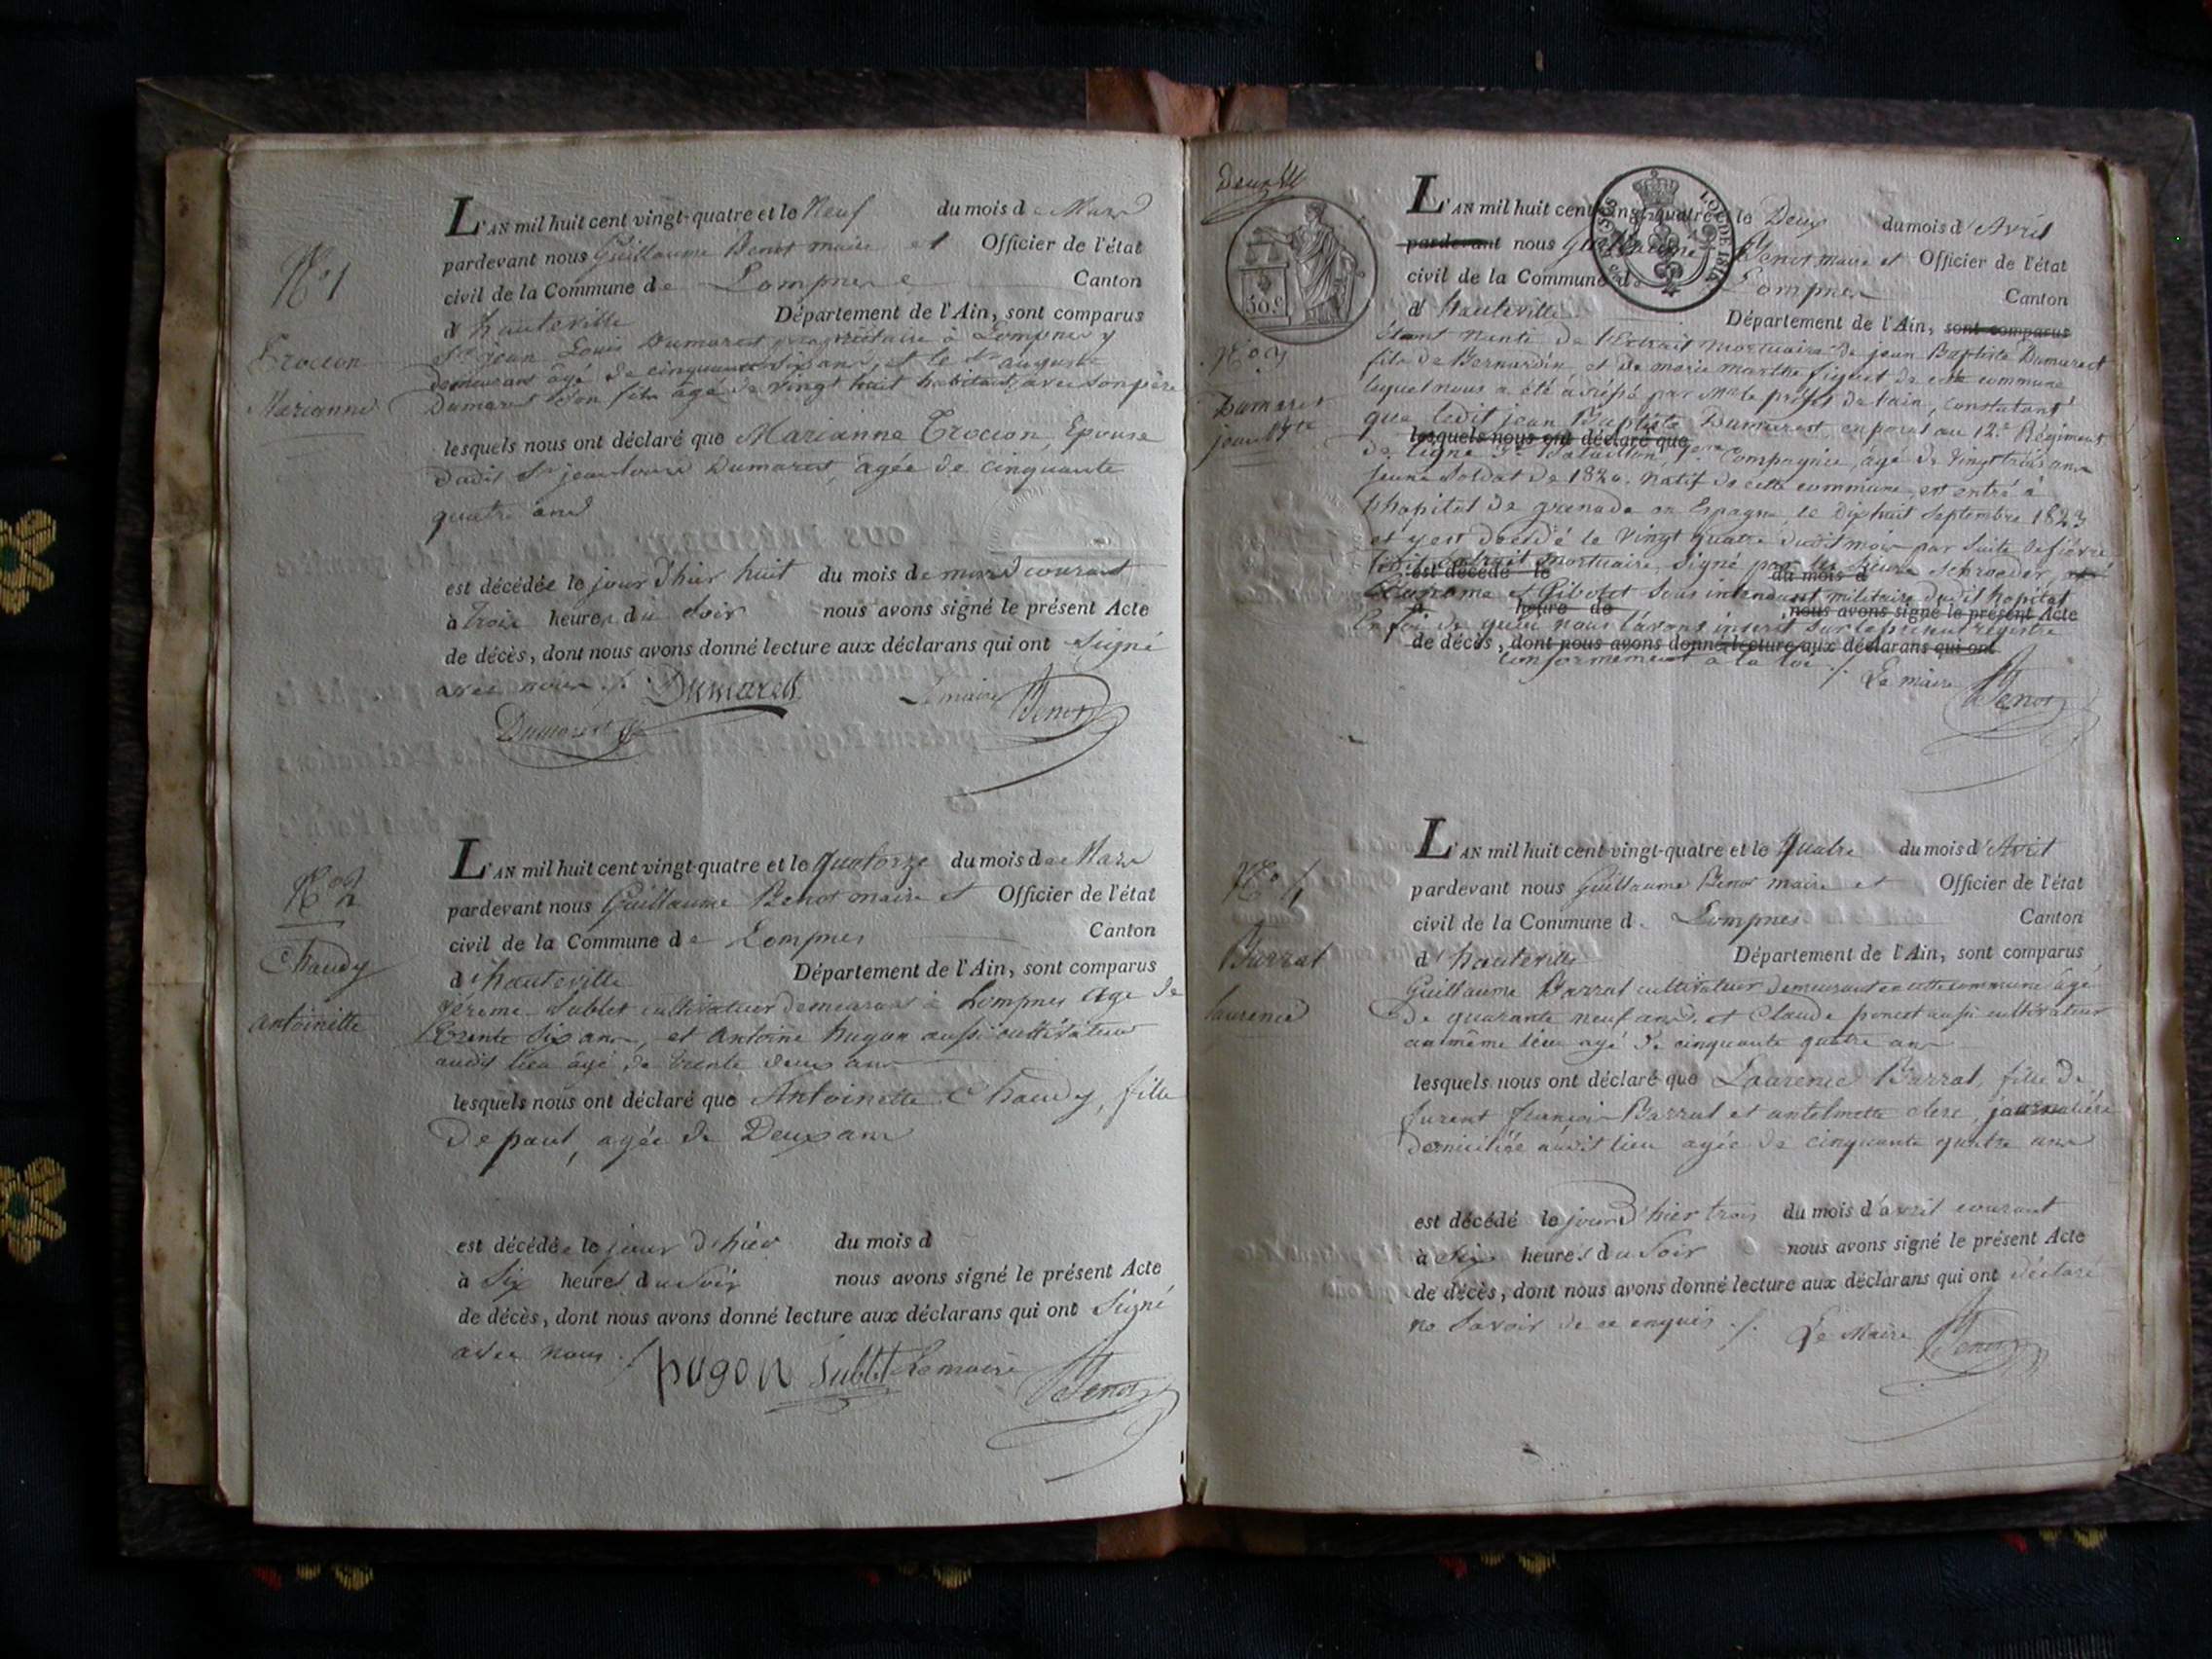 N.º 1
Trocon
Marianne
L'AN mil huit cent vingt-quatre et le Neuf du mois de Mars
pardevant nous Guillaume Benot maire et Officier de l'état
civil de la Commune de Lompnes Canton
d'hauteville Département de l'Ain, sont comparus
Sr jean Louis Dumarest propriétaire à Lompnes y
demeurant âgé de cinquante six ans, et le Sr auguste
Dumarest son fils âgé de vingt huit habitant avec son père
lesquels nous ont déclaré que Marianne Trocon, Epouse
dudit Sr jean louis Dumarest, agée de cinquante
quatre ans
est décédée le jour d'hier huit du mois de mars courant
à Trois heures du Soir nous avons signé le présent Acte
de décès, dont nous avons donné lecture aux déclarans qui ont Signé
avec nous ./. Dumarest Le maire Benot
Dumarest
N.º 2
Chaudy
antoinette
L'AN mil huit cent vingt-quatre et le Quatorze du mois de Mars
pardevant nous Guillaume Benot maire et Officier de l'état
civil de la Commune de Lompnes Canton
d'hauteville Département de l'Ain, sont comparus
jéreme Sublet cultivateur demeurant à Lompnes Agé de
Trente Six ans, et Antoine hugon aussi cultivateur
audit lieu âgé de trente deux ans
lesquels nous ont déclaré que Antoinette Chaudy, fille
de paul, agée de Deux ans
est décédée le jour d'hier du mois d
à Six heures du Soir nous avons signé le présent Acte
de décès, dont nous avons donné lecture aux déclarans qui ont Signé
avec nous ./. hugon Sublet Le maire Benot
50 C.
LOI DE 1816
N.º 3
Dumarest
jean Bte
L'AN mil huit cent vingt-quatre et le Deux du mois d'Avril
pardevant nous Guillaume Benot maire et Officier de l'état
civil de la Commune de Lompnes Canton
d'hauteville Département de l'Ain, sont comparus
étant nanti de l'Extrait mortuaire de jean Baptiste Dumarest
fils de Bernardin, et de marie marthe figuet de cette commune
lequel nous a été adréssé par Mr le préfet de l'ain, Constatant
que ledit jean Baptiste Dumarest caporal au 12.e Régiment
lesquels nous ont déclaré que
de ligne Bataillon, Compagnie, âgé de vingt trois ans
jeune Soldat de 1820. natif de cette commune, est entré à
l'hopital de grenade en Espagne, le Dix huit Septembre 1823
et y est decédé le vingt quatre dudit mois par Suite de fièvre
ledit Extrait mortuaire, Signé par les Sieurs Schroeder,
est décédé le du mois d
Econome et Gibotet Sous intendant militaire dudit hopital
à heure de nous avons signé le présent Acte
En foi de quoi nous l'avons inseré Sur le présent registre
de décès, dont nous avons donné lecture aux déclarans qui ont
conformement à la loi ./. Le maire Benot
N.º 4
Barrat
laurence
L'AN mil huit cent vingt-quatre et le Quatre du mois d'Avril
pardevant nous Guillaume Benot maire et Officier de l'état
civil de la Commune d. Lompnes Canton
d'hauteville Département de l'Ain, sont comparus
Guillaume Barrat cultivateur demeurant en cette commune âgé
de quarante neuf ans, et Claude poncet aussi cultivateur
au même lieu agé de cinquante quatre ans
lesquels nous ont déclaré que Laurence Barrat, fille de
furent françois Barrat et antelmette clerc, journalière
domiciliée audit lieu agée de cinquante quatre ans
est décédé le jour d'hier trois du mois d'avril courant
à Six heures du Soir nous avons signé le présent Acte
de décès, dont nous avons donné lecture aux déclarans qui ont déclaré
ne Savoir de ce enquis ./. Le Maire Benot